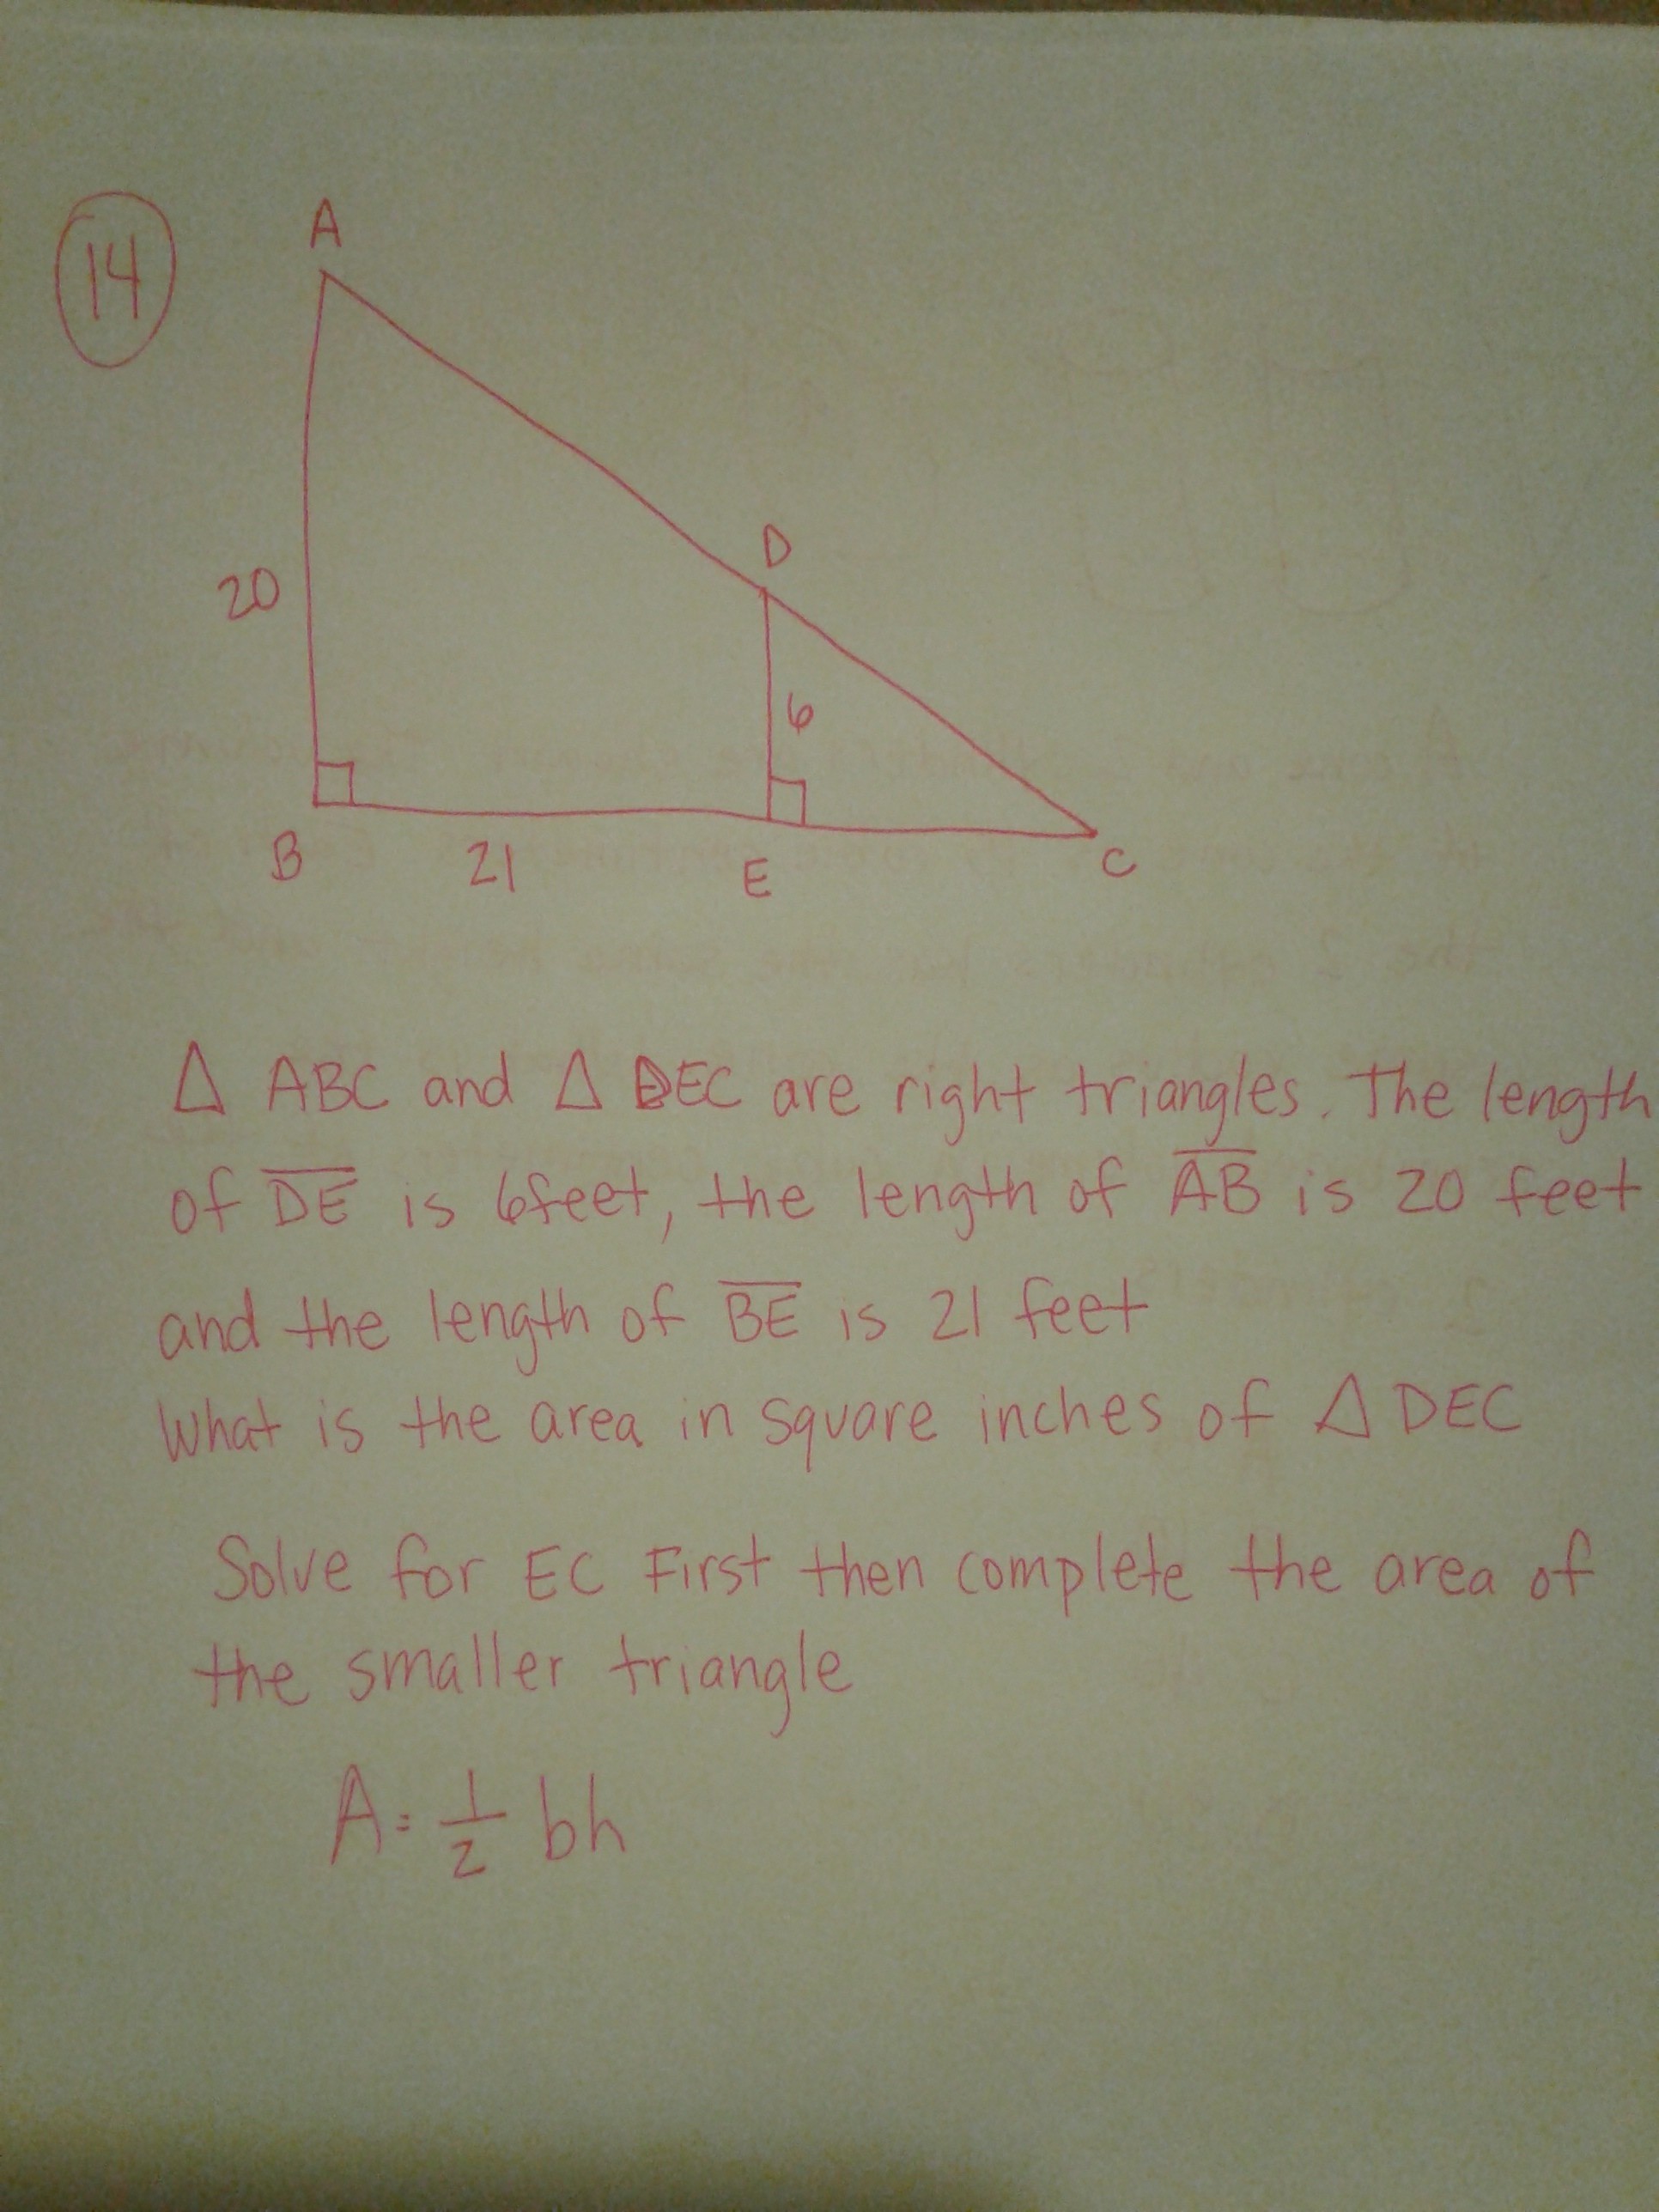 14
A
D
20
6
B
21
E
C
△ ABC and △ DEC are right triangles. The length
of D̅E̅ is 6feet, the length of A̅B̅ is 20 feet
and the length of B̅E̅ is 21 feet
What is the area in square inches of △ DEC
Solve for EC First then complete the area of
the smaller triangle
A = 1/2 bh